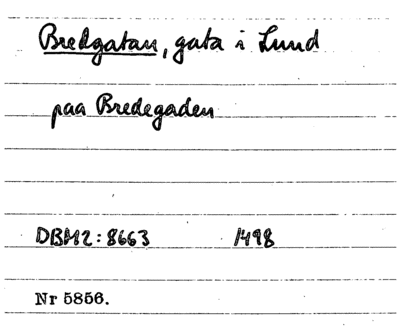 Bredgatan, gata i Lund
paa Bredegaden
DBH2:8663 1498
Nr 5856.